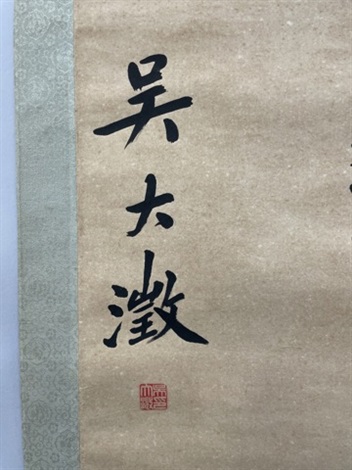 吳大澂